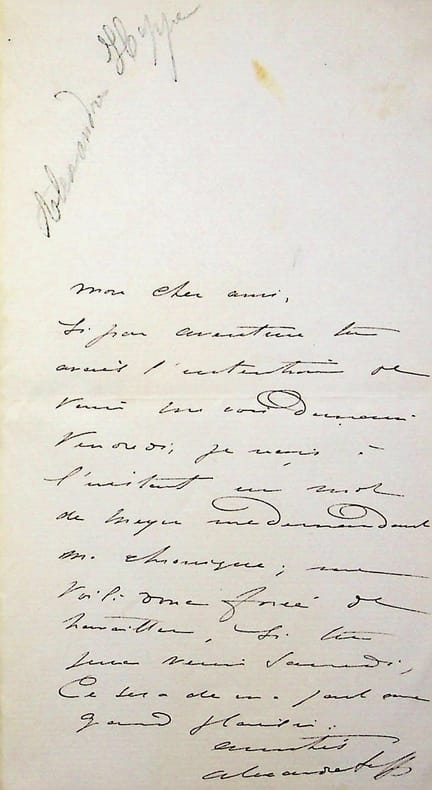 Alexandre Hepp
Mon cher ami,
Si par aventure tu
avais l'intention de
venir me voir demain
Vendredi, je reçois à
l'instant un mot
de Meyer me demandant
ma chronique; me
voilà donc forcé de
travailler. Si tu
peux venir Samedi,
Ce sera de ma part une
grand plaisir.
amitiés
Alexandre Hepp